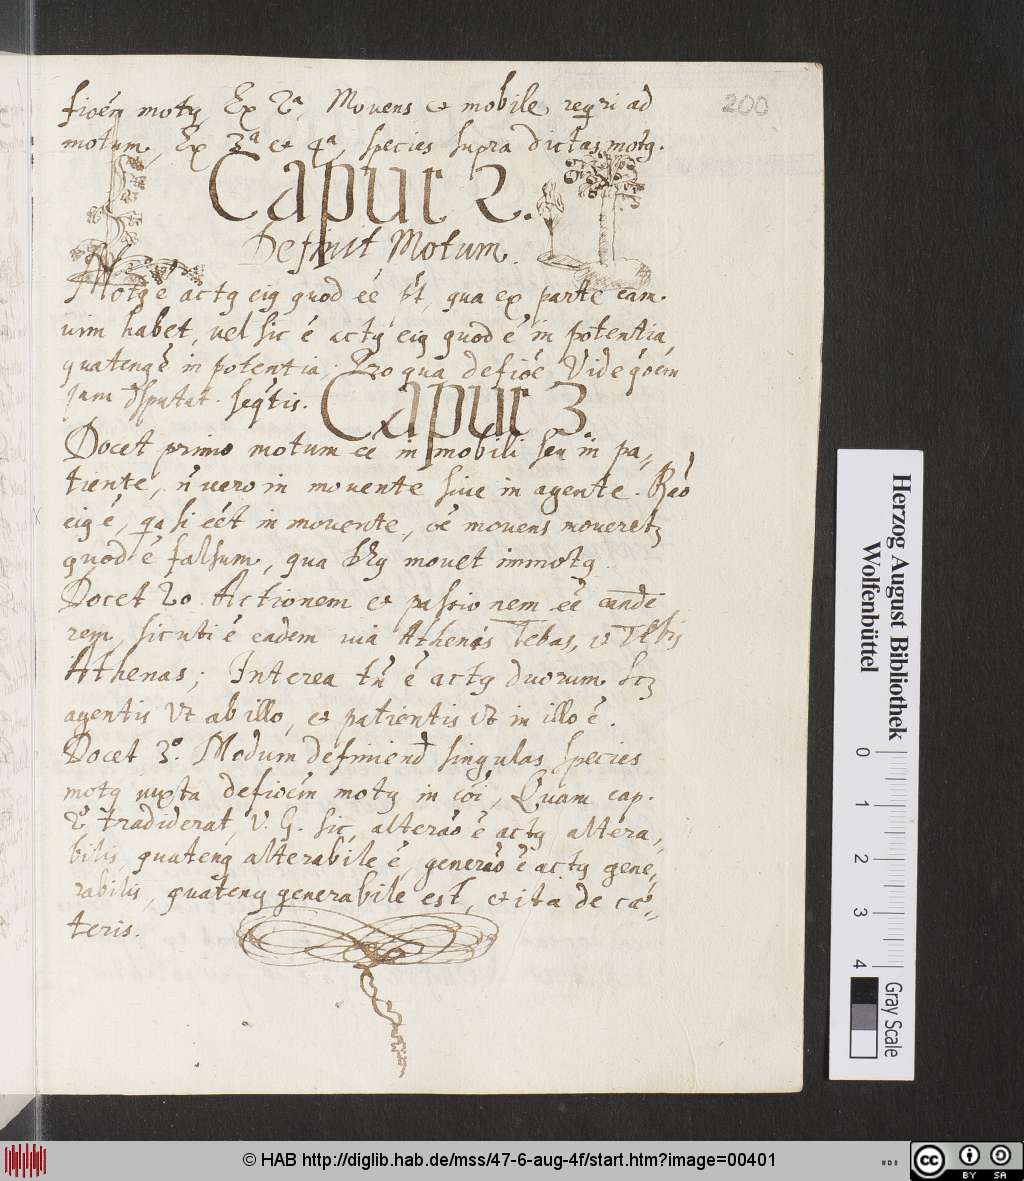 fioém motꝯ Ex 2ª, Movens et mobile reqri ad
motum, Ex 3ª et 4ª, species supra dictas motꝯ.
200
Caput 2.
Definit Motum.
Motꝯ ē actꝯ eiꝯ quod éé pt, qua ex parte eam
vim habet, vel sic ē actꝯ eiꝯ quod ē in potentia,
quatenꝯ ē in potentia; Pro qua defiōe Vide qōem
jam disputat. seqtis.
Caput 3
Docet primo motum éé in mobili seu in pa„
tiente, n̄ vero in movente sive in agente. Rāo
eiꝯ ē, qa si eét in movente, oē movens moveretꝫ
quod ē falsum, qua movet immotꝯ
Docet 2o Actionem et passionem éé eande
rem, sicuti ē eadem via Athenis Tebas, et Tebis
Athenas; Interea tn̄ ē actꝯ duorum scꝫ
agentis Vt ab illo, et patientis Vt in illo ē.
Docet 3º. Modum definiend singulas species
motꝯ juxta defioēm motꝯ in cōi, Quam cap.
2º tradiderat, V. G. sic, alterāo ē actꝯ altera„
bilis, quatenꝯ alterabile ē, generāo ē actꝯ gene„
rabilis, quatenꝯ generabile est, et ita de cæ„
teris.
Herzog August Bibliothek
Wolfenbüttel
0 1 2 3 4
Gray Scale
© HAB http://diglib.hab.de/mss/47-6-aug-4f/start.htm?image=00401
cc BY SA